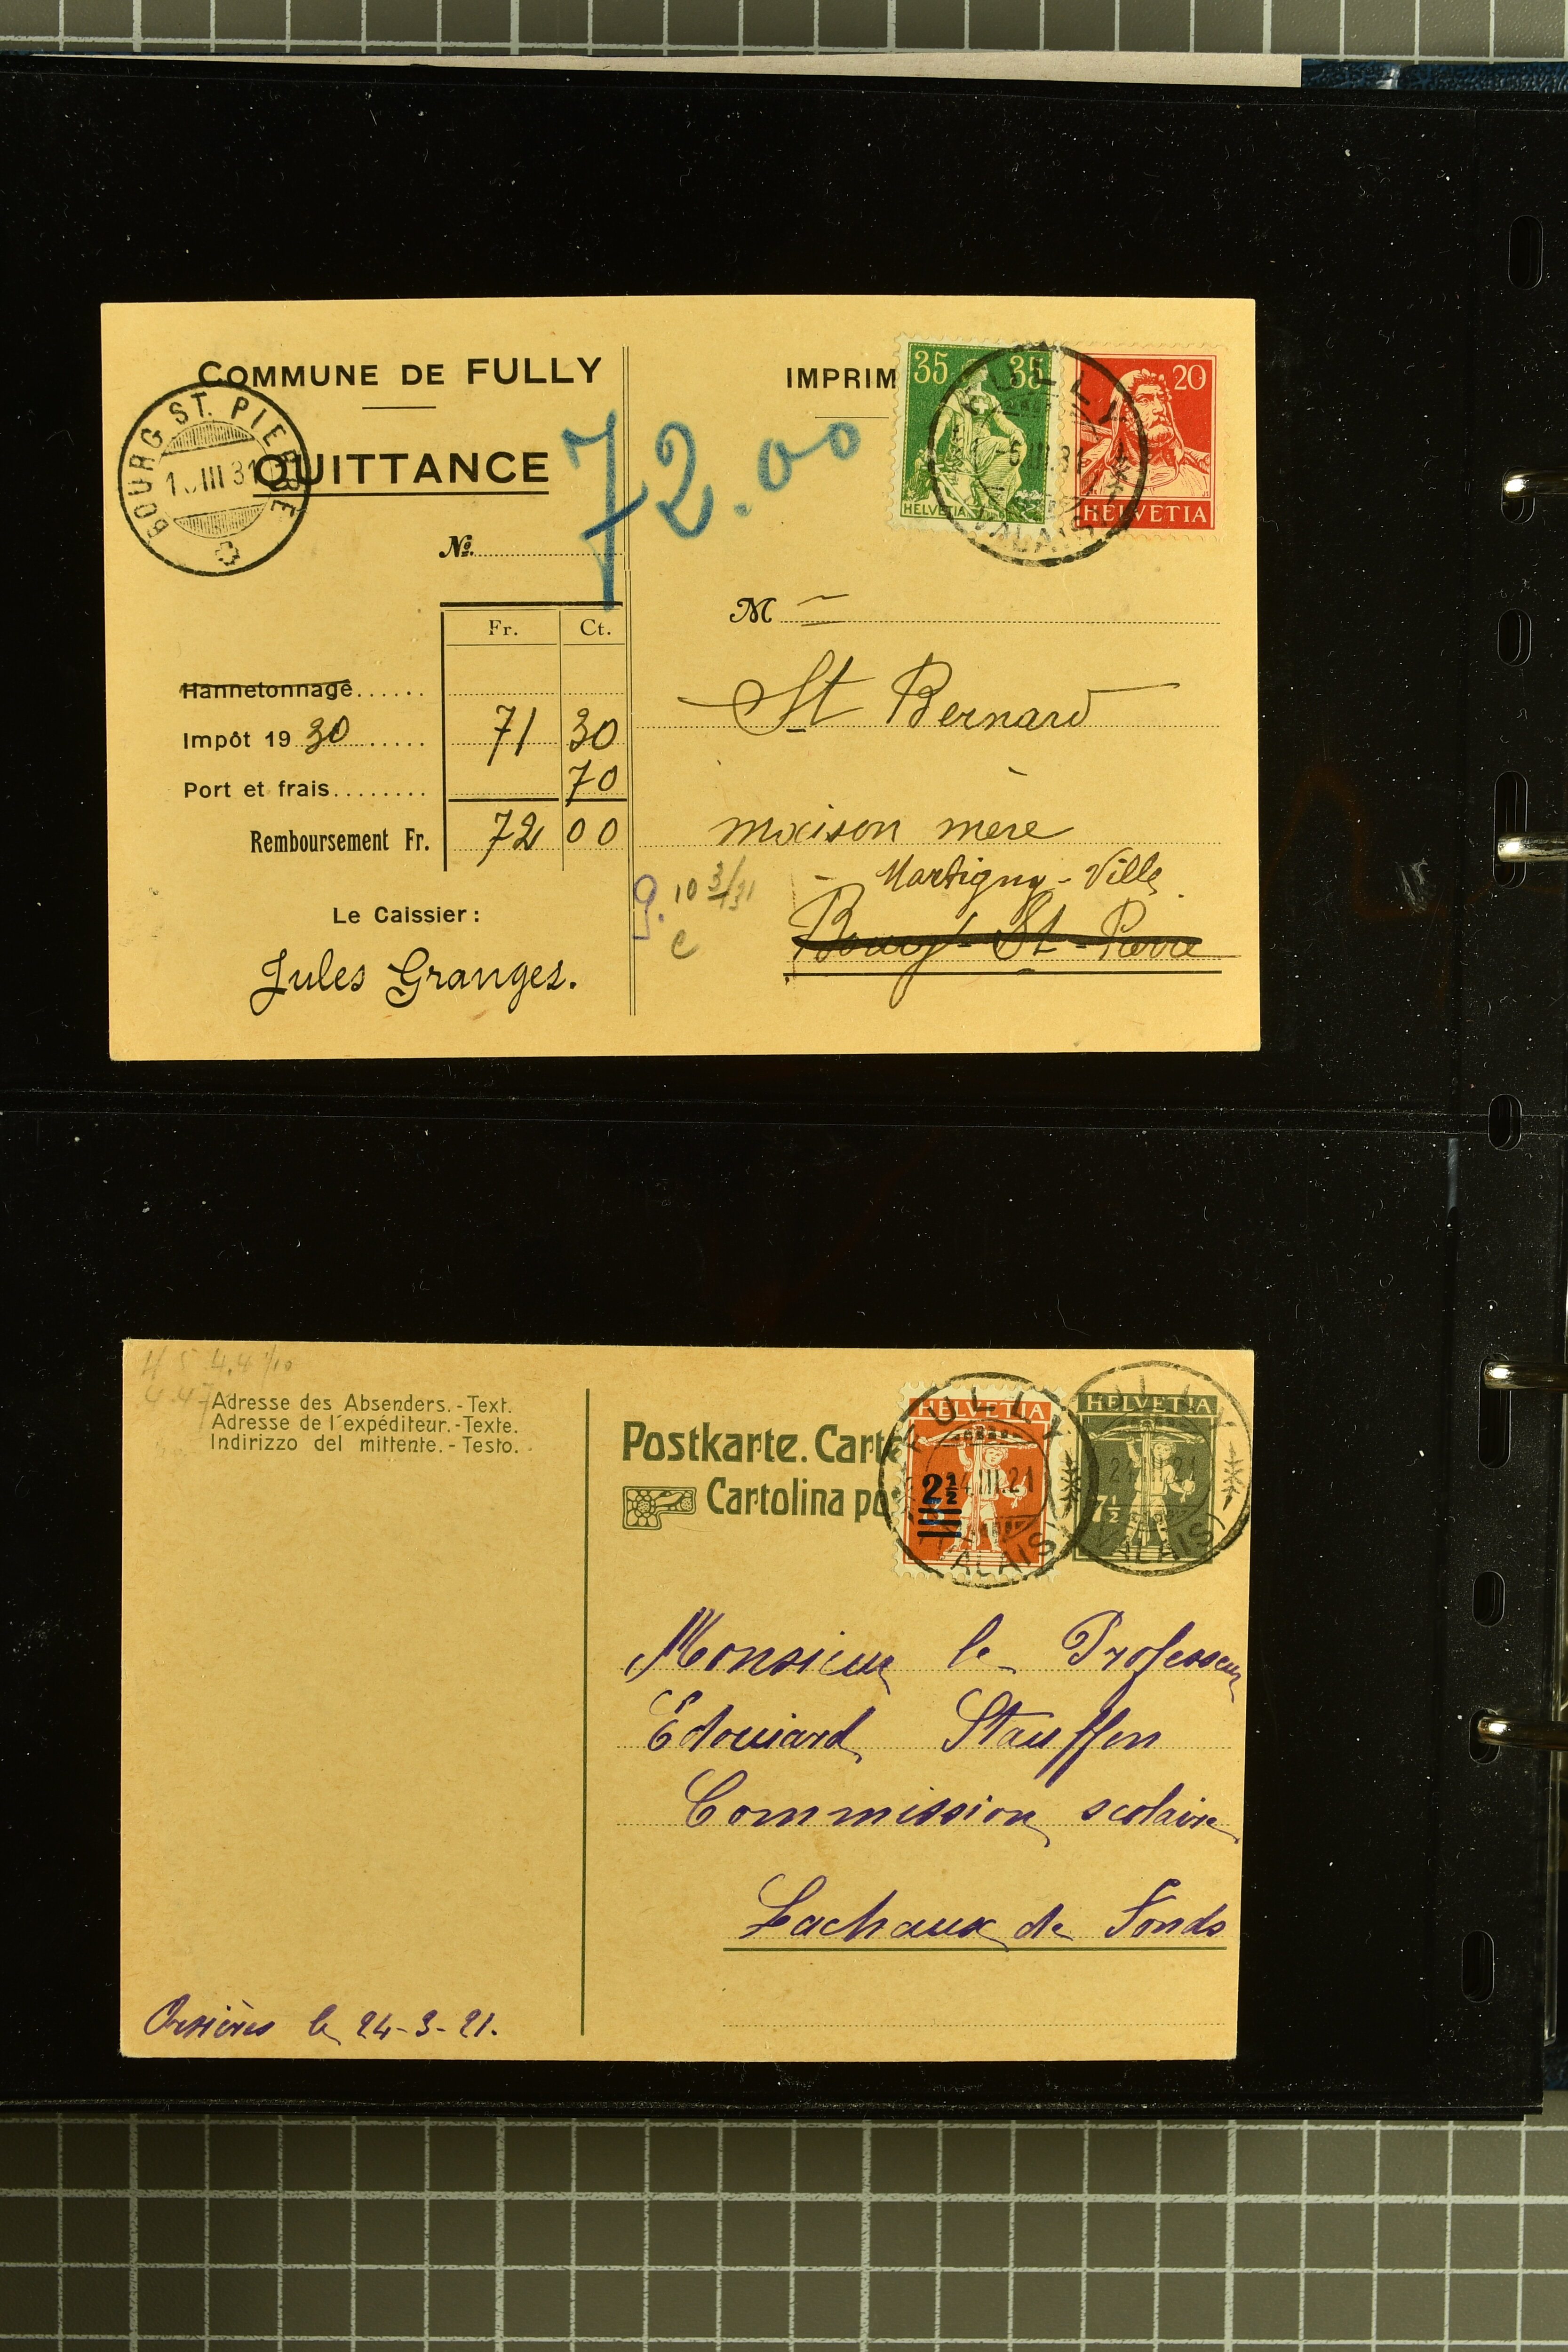 COMMUNE DE FULLY
QUITTANCE
No.
BOURG ST. PIERRE
III 31
72.00
Fr. Ct.
Hannetonnage......
Impôt 19 30 ..... 71 30
Port et frais........ 70
Remboursement Fr. 72 00
Le Caissier :
Jules Granges.
IMPRIM
35 35
HELVETIA
20
HELVETIA
FULLY
-6.III.31
VALAIS
M
St Bernard
maison mère
Martigny-Ville
Bourg-St-Pierre
9. 10 3/31
c
4.4 1/10
4.47
Adresse des Absenders.-Text.
Adresse de l'expéditeur.-Texte.
Indirizzo del mittente.-Testo.
Postkarte. Carte
Cartolina po
HELVETIA
2½
HELVETIA
7½
FULLY
24.III.21
VALAIS
24.III.21
(VALAIS)
Monsieur le Professeur
Edouard Stauffen
Commission scolaire
Lachaux de Fonds
Orsières le 24-3-21.